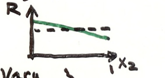 R
1 X2
Vary